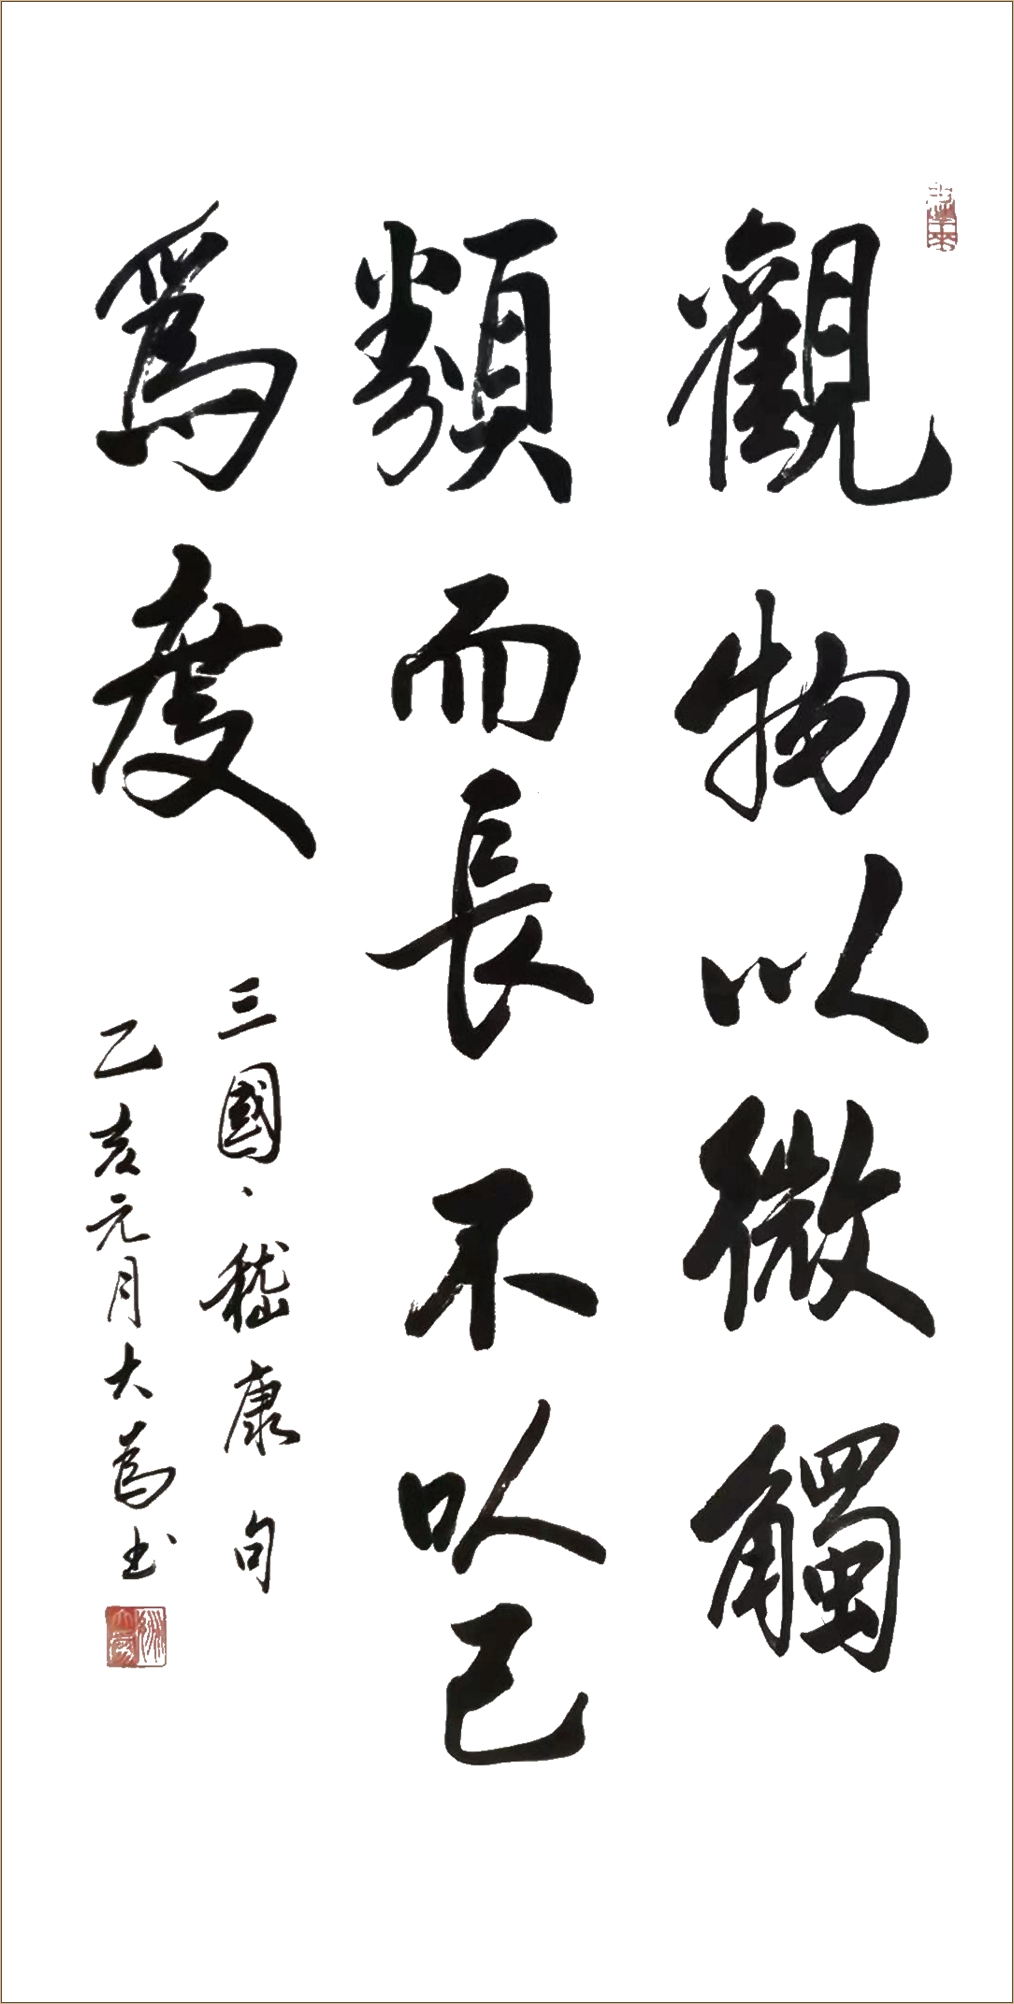 觀物以微觸
類而長不以己
爲度
三國·嵇康句
乙亥元月大爲书